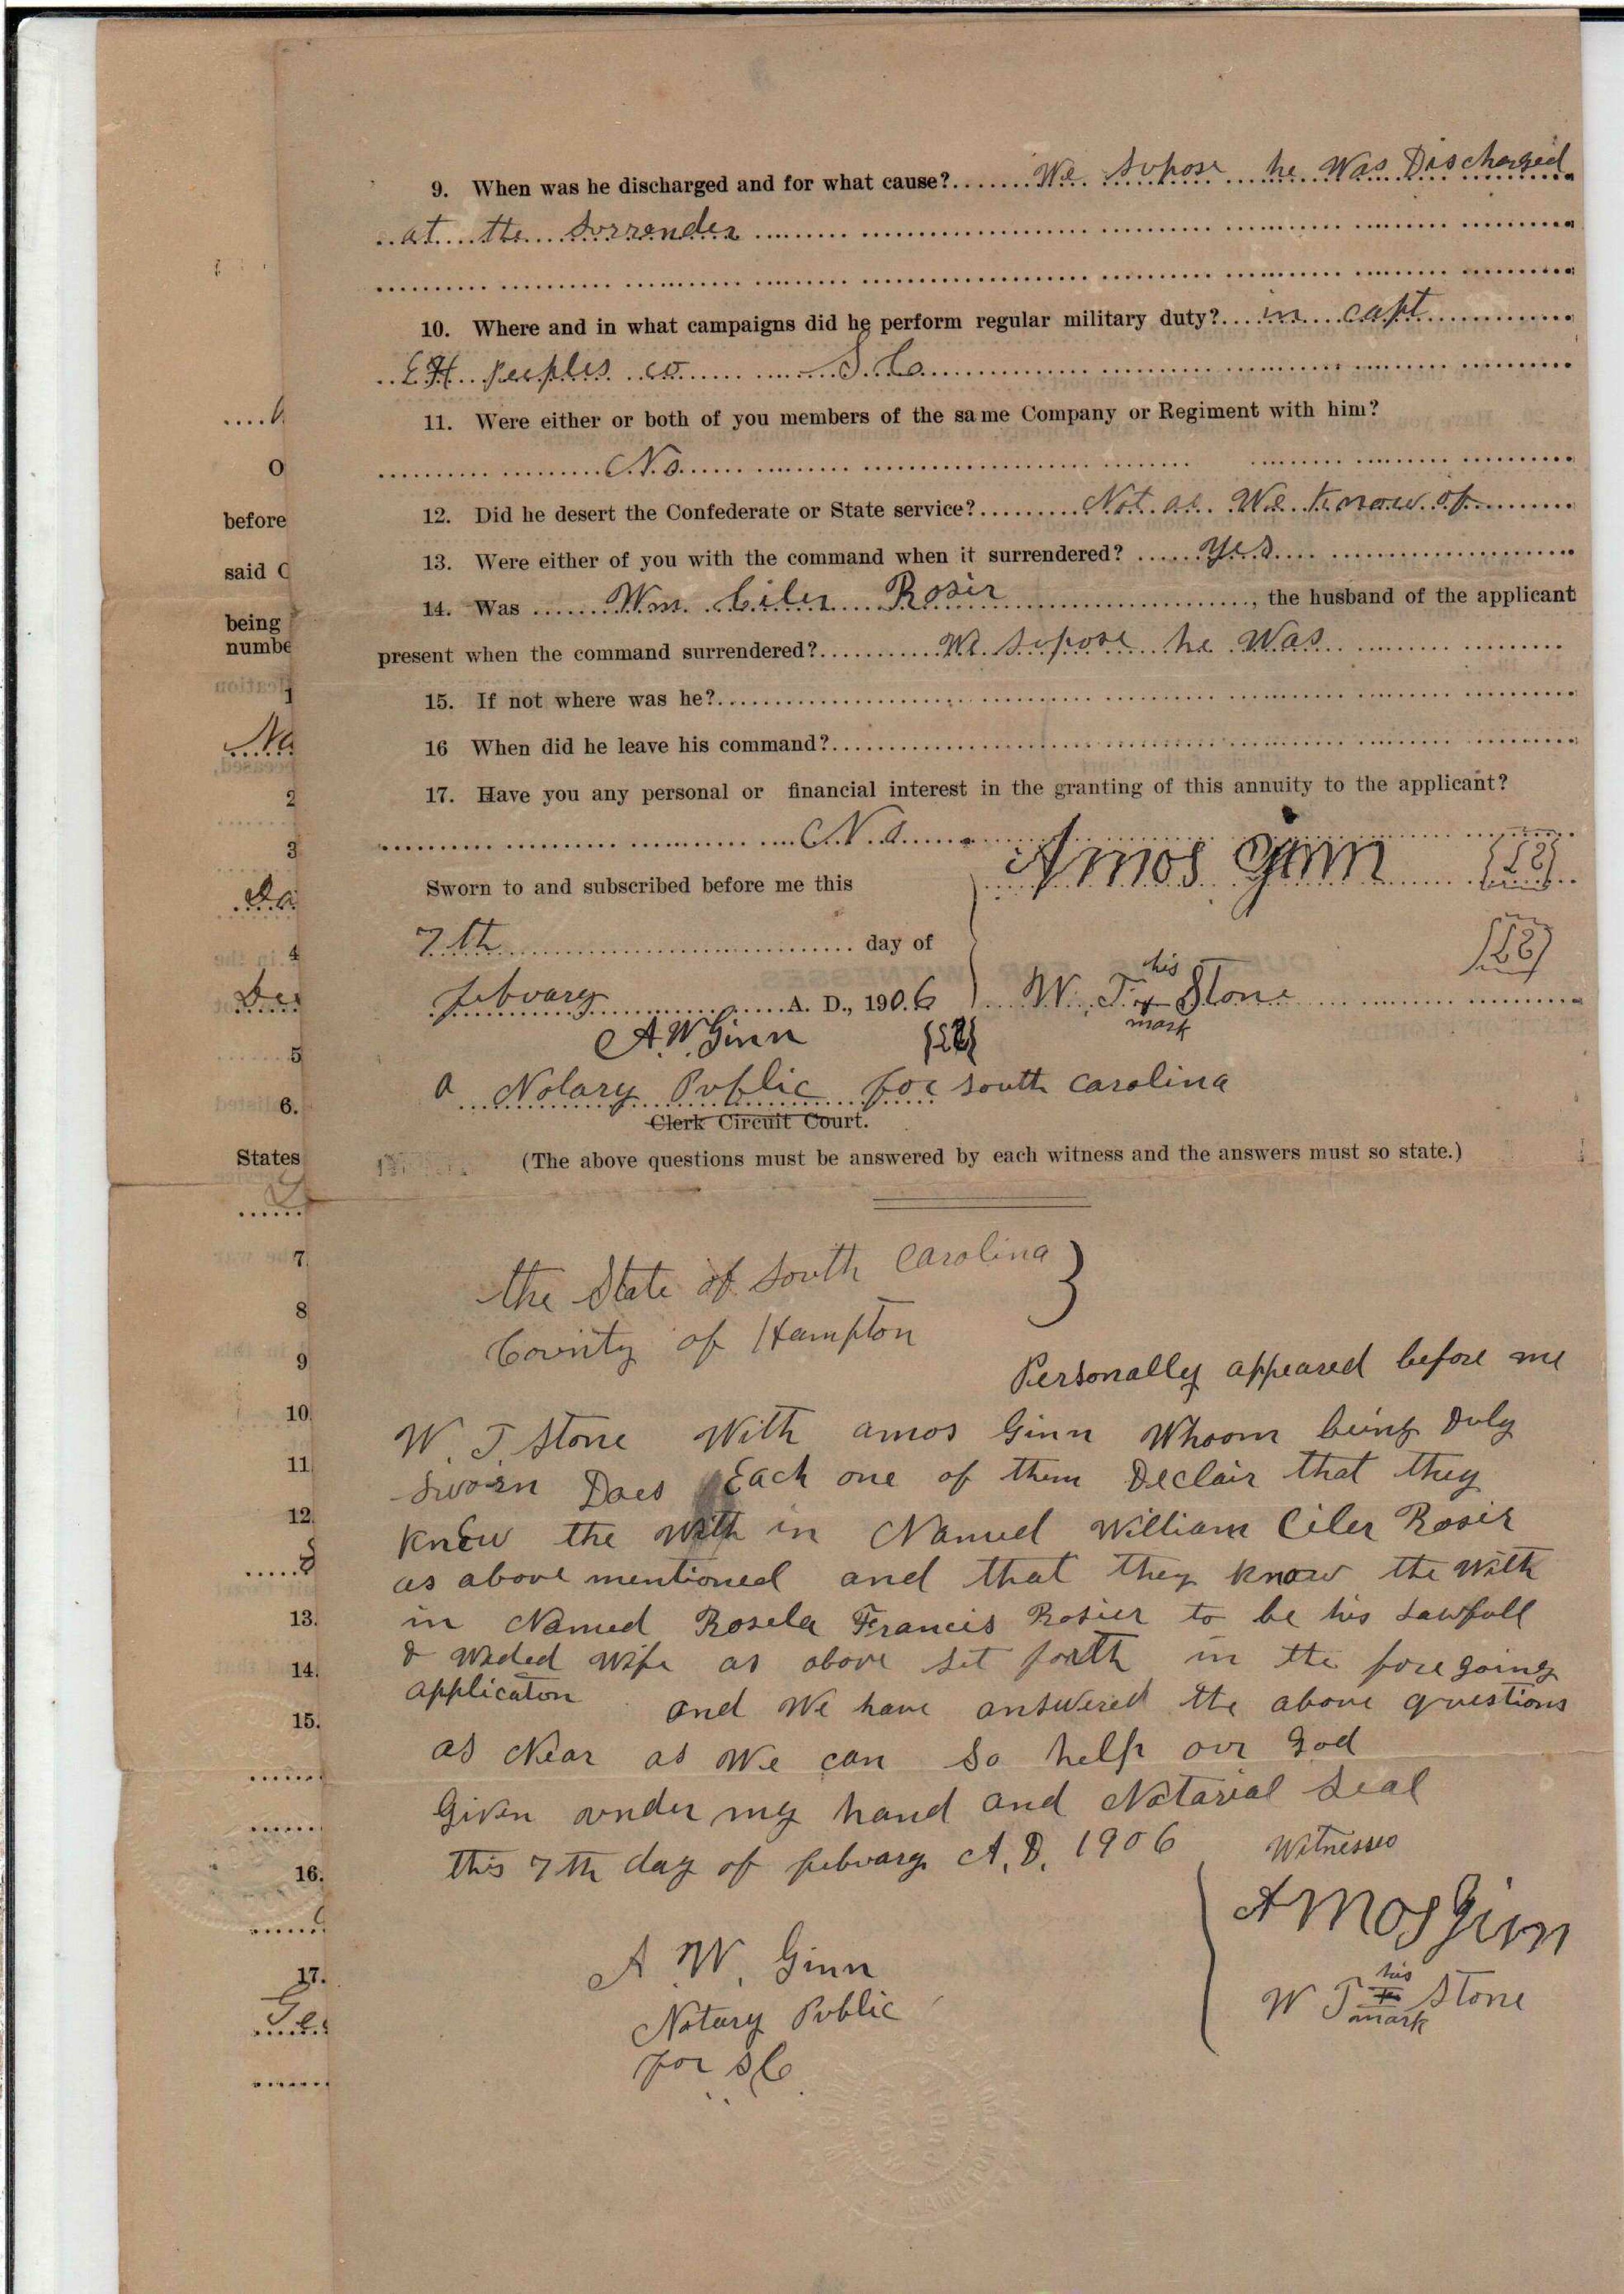 9. When was he discharged and for what cause? We supose he Was Discharged
at the surrender
10. Where and in what campaigns did he perform regular military duty? in capt
E H peeples co S. C.
11. Were either or both of you members of the same Company or Regiment with him?
No
12. Did he desert the Confederate or State service? Not as We know of
13. Were either of you with the command when it surrendered? yes
14. Was Wm Ciler Rosir, the husband of the applicant
present when the command surrendered? We supose he Was
15. If not where was he?
16 When did he leave his command?
17. Have you any personal or financial interest in the granting of this annuity to the applicant?
No
Amos Ginn
Sworn to and subscribed before me this
7th day of
his
febuary A. D., 1906 W. T. x Stone
mark
A. W. Ginn
a Notary Public for south carolina
Clerk Circuit Court.
(The above questions must be answered by each witness and the answers must so state.)
the State of South Carolina }
County of Hampton
Personally appeared before me
W. T. Stone With amos Ginn Whoom being Duly
sworn Does Each one of them Declair that they
knew the With in Named William Ciler Rosir
as above mentioned and that they know the With
in Named Rosela Francis Rosier to be his Lawfull
& Weded Wife as above set forth in the foregoing
applicaton and We have answered the above questions
as Near as We can So help our god
Given under my hand and Notarial Seal
this 7th day of febuary A. D. 1906 Witnesses
Amos Ginn
A W. Ginn
his
W T x Stone
mark
Notary Public
for S C
before
said
being
numbe
1
Na
2
3
4
5
6.
States
7
8
9
10
11
12.
13.
14.
15.
16.
17.